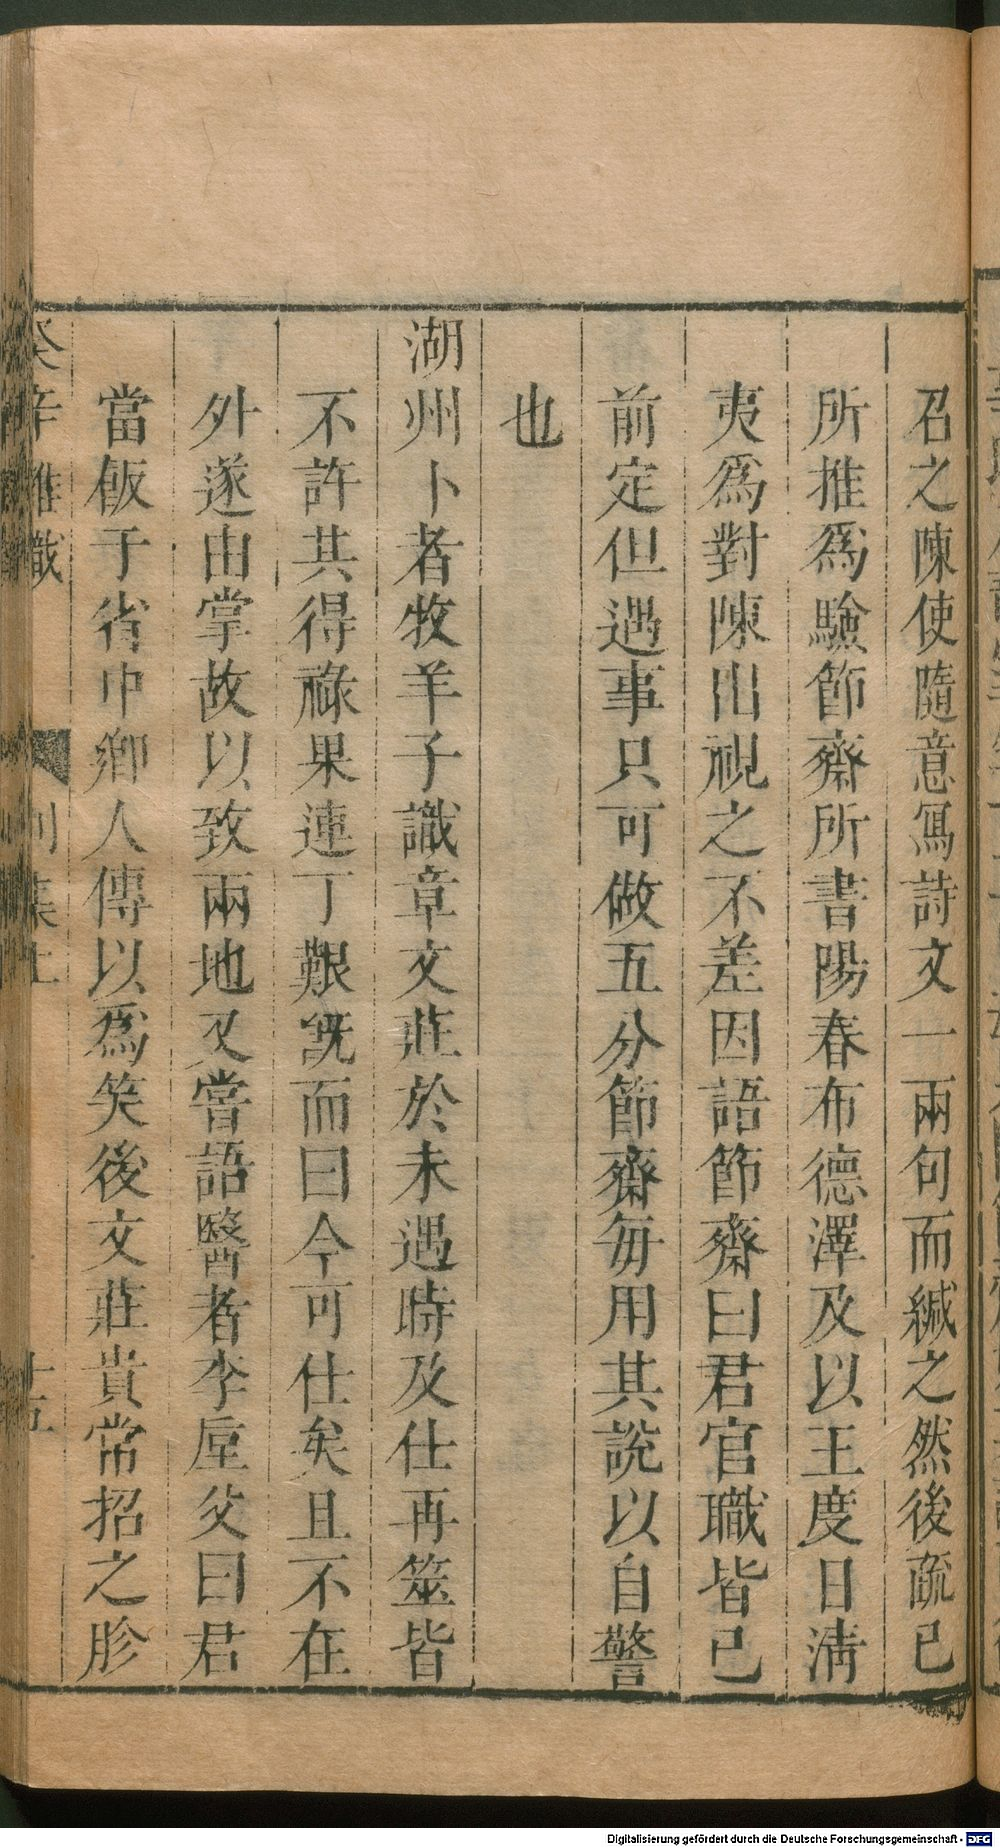 召之陳使隨意寫詩文一兩句而緘之然後疏已
所推爲驗節齋所書陽春布德澤及以王度日淸
夷爲對陳出視之不差因語節齋曰君官職皆已
前定但遇事只可做五分節齋每用其說以自警
也
湖州卜者牧羊子識章文莊於未遇時及仕再筮皆
不許共得祿果連丁艱旣而曰今可仕矣且不在
外遂由掌故以致兩地又嘗語醫者李垕父曰君
當飯于省中鄉人傳以爲笑後文莊貴常招之胗
癸辛雜識 別集上 十五
Digitalisierung gefördert durch die Deutsche Forschungsgemeinschaft - DFG